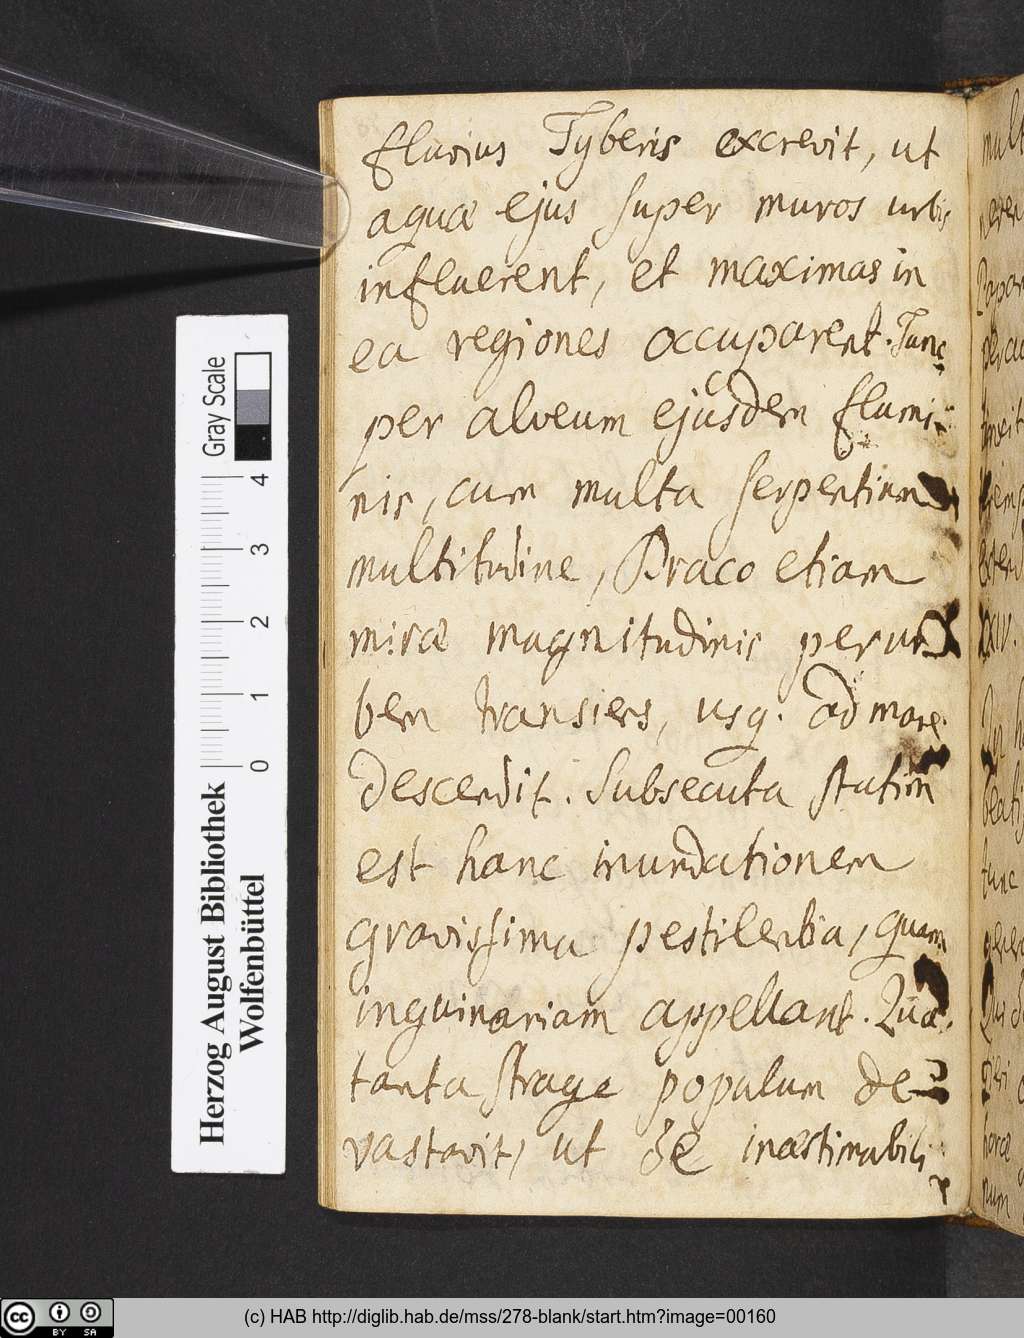 fluvius Tyberis excrevit, ut
aquæ ejus super muros urbis
influerent, et maximas in
ea regiones occuparent. Tunc
per alveum ejusdem flumi-
nis, cum multa serpentium
multitudine, Draco etiam
miræ magnitudinis per ur-
bem transiens, usq. ad mare
descendit. Subsecuta statim
est hanc inundationem
gravissima pestilentia, quam
inguinariam appellant. Quæ
tanta strage populum de-
vastavit, ut de inæstimabili
Gray Scale
4
3
2
1
0
Herzog August Bibliothek
Wolfenbüttel
cc BY SA
(c) HAB http://diglib.hab.de/mss/278-blank/start.htm?image=00160